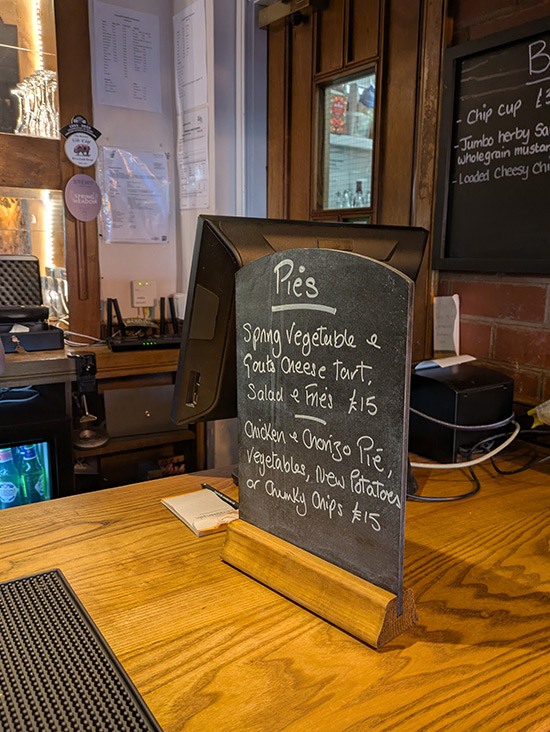 Pies
Spring Vegetable &
Goats Cheese tart,
Salad & Fries £15
Chicken & Chorizo Pie,
Vegetables, New Potatoes
or Chunky Chips £15
B
- Chip Cup £
- Jumbo herby Sa
wholegrain mustar
- Loaded Cheesy Chi